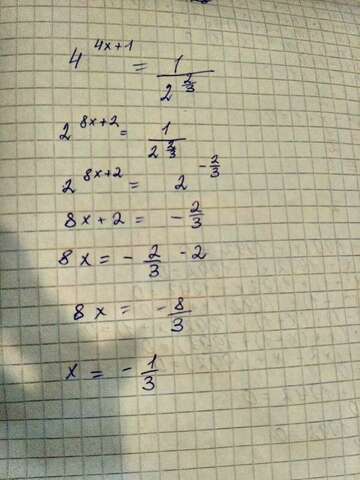 4^{4x+1} = \frac{1}{2^{\frac{2}{3}}}
2^{8x+2} = \frac{1}{2^{\frac{2}{3}}}
2^{8x+2} = 2^{-\frac{2}{3}}
8x+2 = -\frac{2}{3}
8x = -\frac{2}{3} -2
8x = -\frac{8}{3}
x = -\frac{1}{3}